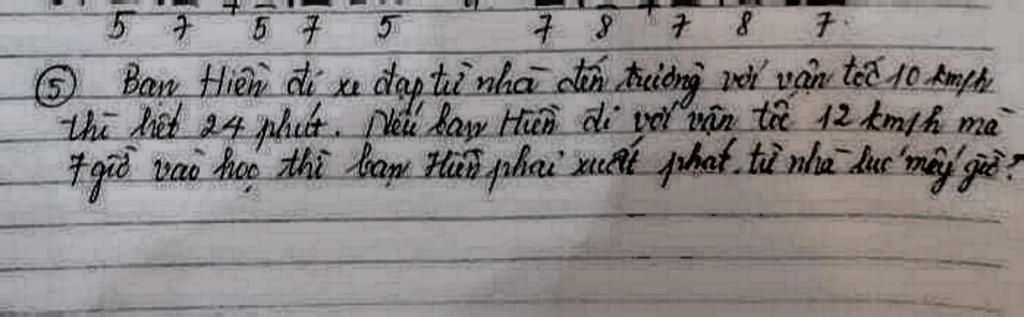 5 7 5 7 5 7 8 7 8 7
⑤ Bạn Hiền đi xe đạp từ nhà đến trường với vận tốc 10 km/h
thì hết 24 phút. Nếu bạn Hiền đi với vận tốc 12 km/h mà
7 giờ vào học thì bạn Hiền phải xuất phát từ nhà lúc mấy giờ?